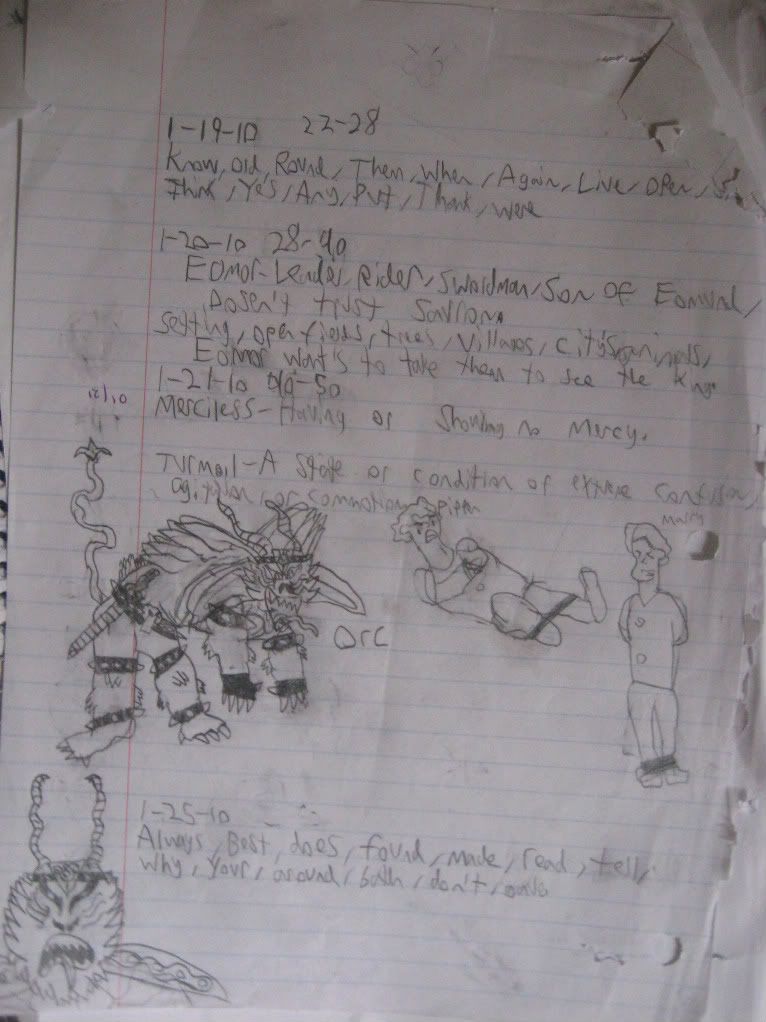 1-19-10 22-28
Know, Old, Round, Them, When, Again, Live, Open,
Think, Yes, Any, Put, Thank, were
1-20-10 28-40
Eomor-Leader, Rider, Swordman, Son OF Eomund,
Dosen't trust
setting, open fields, trees, Villages,
Eomor want's to take them to see the King
1-21-10 40-50
12/10
Merciless-Having or Showing no Mercy.
Turmoil-A State or condition of extreme confusion,
agitation, or commotion
Pippin
Merry
Orc
1-25-10
Always, Best, does, found, made, read, tell,
why, your, around, both, don't,